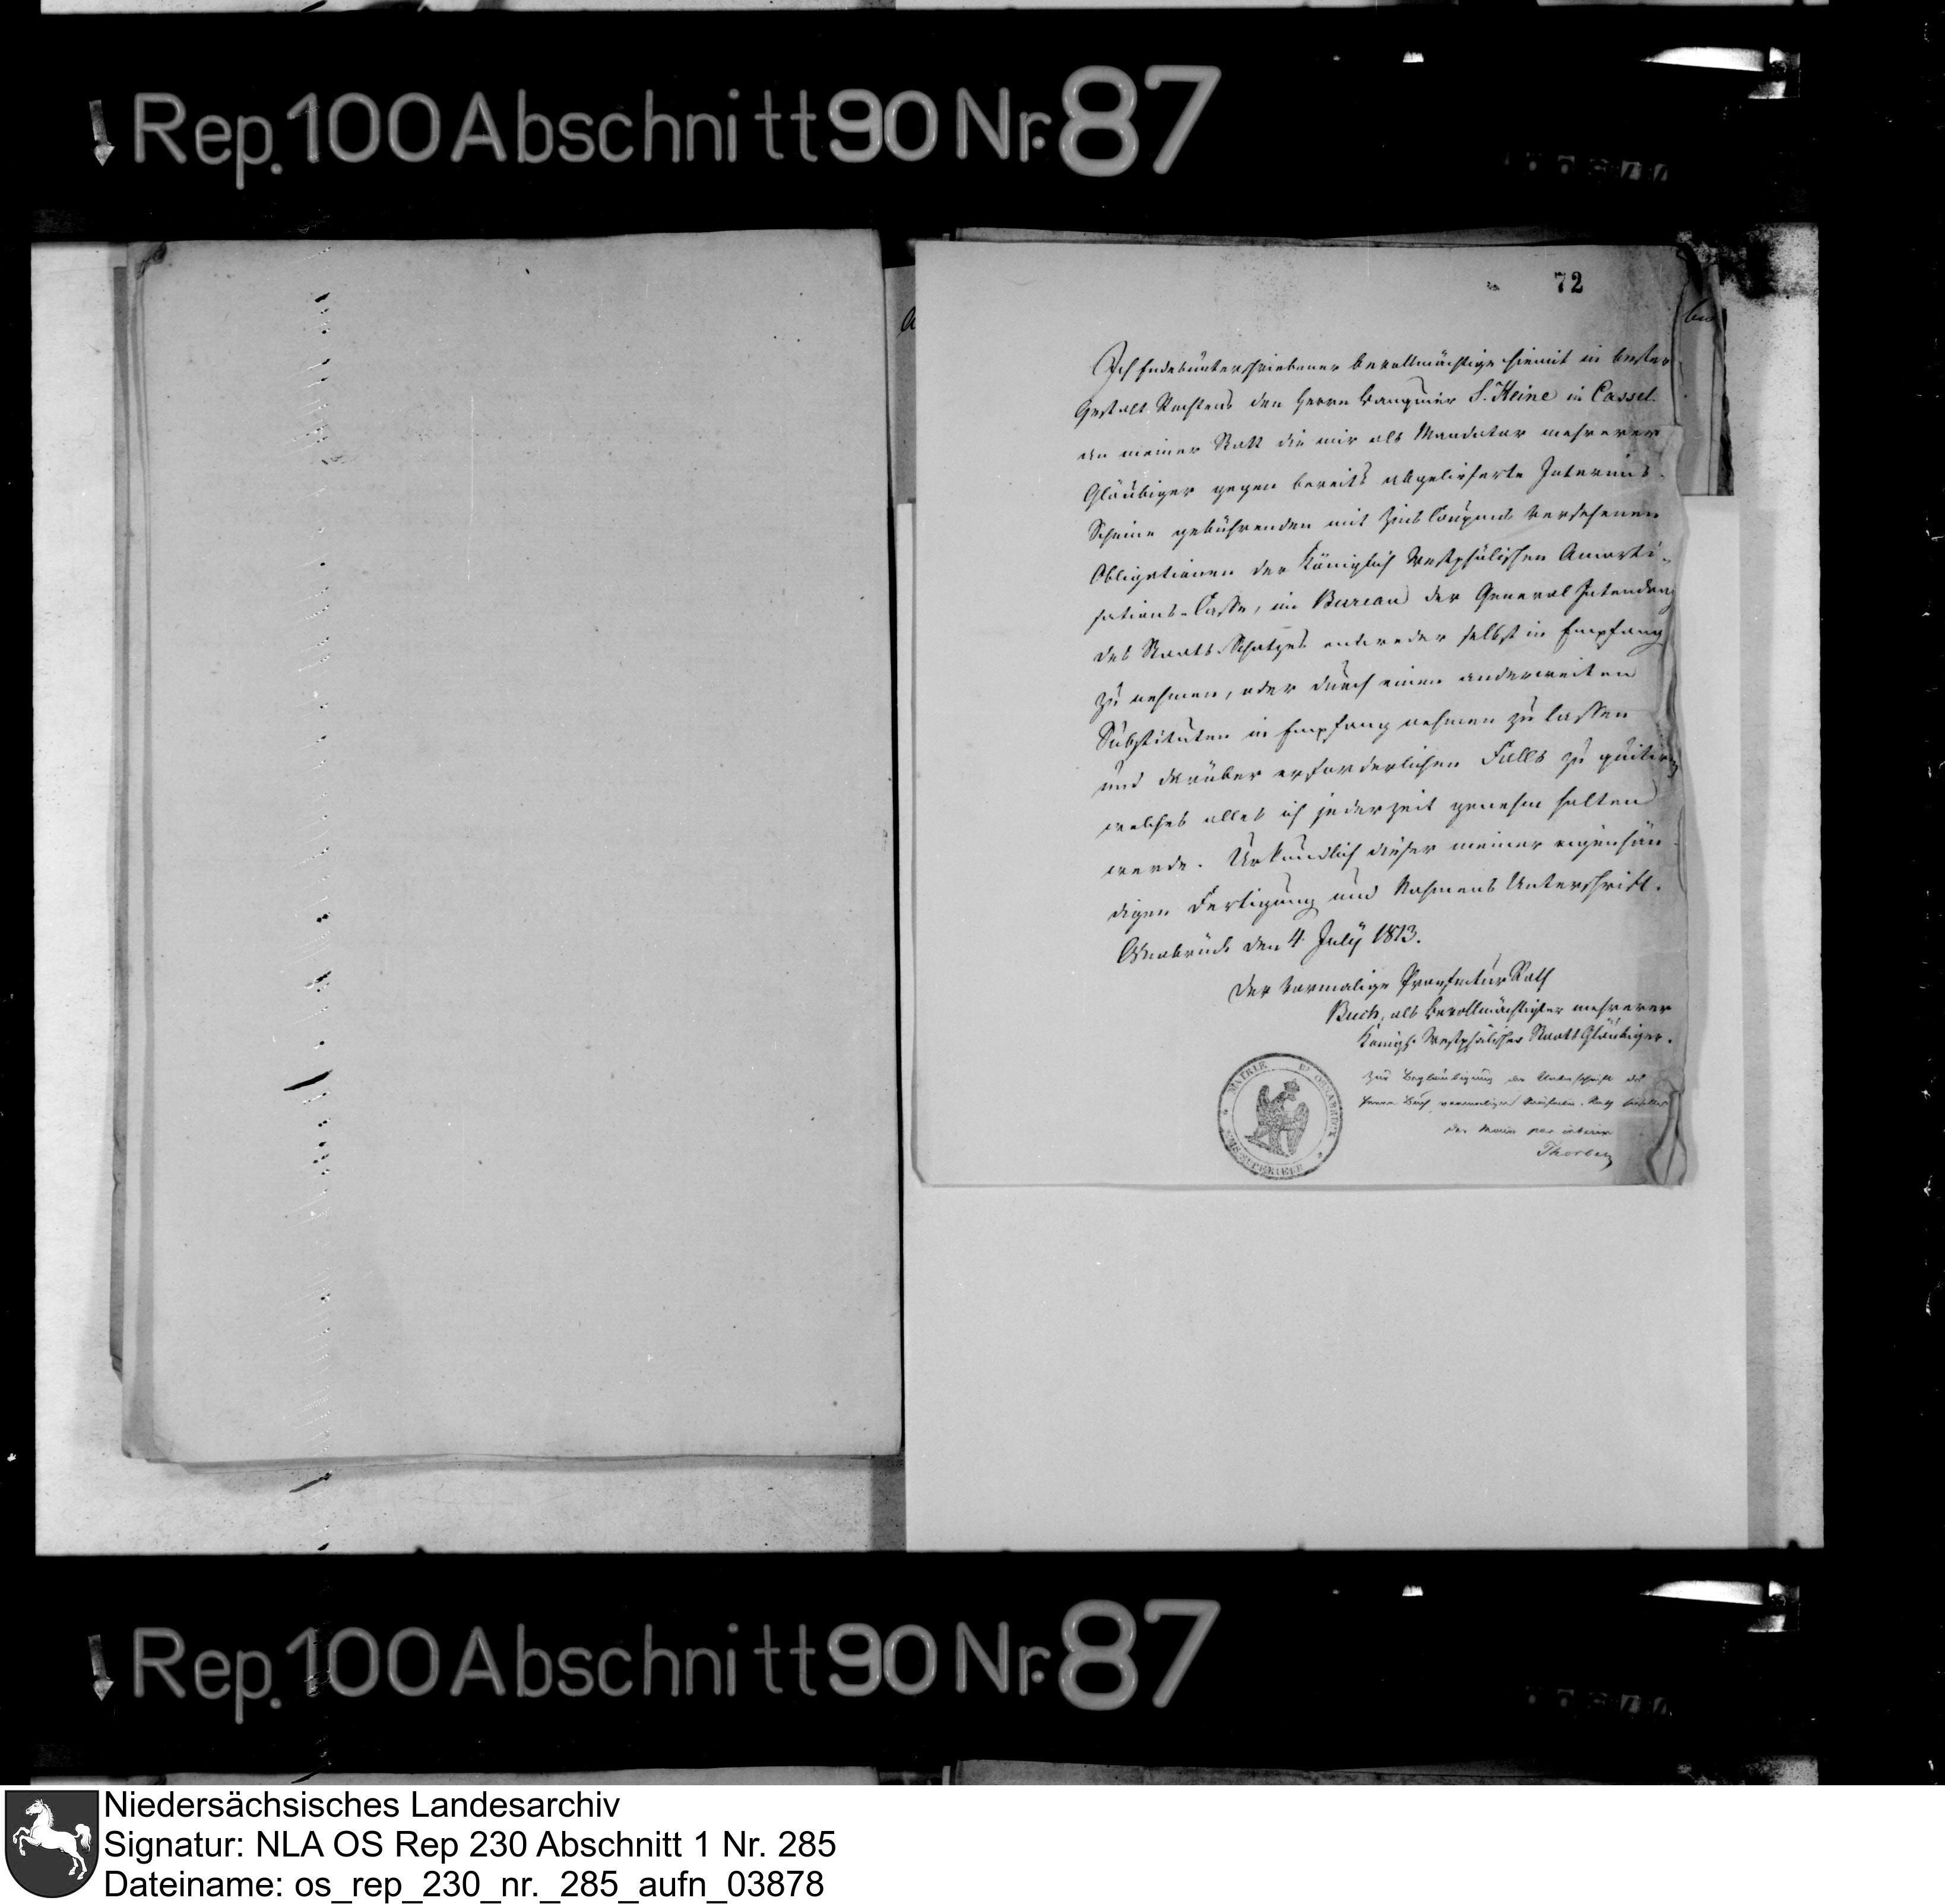 Rep. 100 Abschnitt 90 Nr. 87
72
Ich Endesunterschriebener bevollmächtige hiemit in bester
Gestalt Rechtens den Herrn Banquier S. Heine in Cassel.
an meiner Statt die mir als Mandatar mehrerer
Gläubiger gegen bereits abgelieferte Interims-
Scheine gebührenden mit Zins Coupons versehenen
Obligationen der Königlich Westphälischen Amorti-
sations-Casse, im Bureau der General Intendenz
des Staats-Schatzes entweder selbst in Empfang
zu nehmen, oder durch einen anderweiten
Substituten in Empfang nehmen zu lassen
und darüber erforderlichen Falls zu quitiren
welches alles ich jederzeit genehm halten
werde. Urkundlich dieser meiner eigenhän-
digen Fertigung und Nahmens Unterschrift.
Osnabrück den 4. July 1813.
Der vormalige Praefectur Rath
Buch, als Bevollmächtigter mehrerer
Königl. Westphälischer Staats Gläubiger.
MAIRIE D'OSNABRÜCK
EMS SUPERIEUR
Zur Beglaubigung der Unterschrift des
Herrn Buch, vormaligen Präfectur-Rath
der Maire par interim
Rep. 100 Abschnitt 90 Nr. 87
Niedersächsisches Landesarchiv
Signatur: NLA OS Rep 230 Abschnitt 1 Nr. 285
Dateiname: os_rep_230_nr._285_aufn_03878